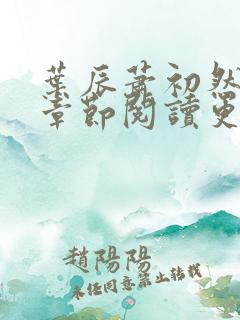 葉辰蕭初然
章節閱讀更
趙陽陽
未經同意禁止轉載